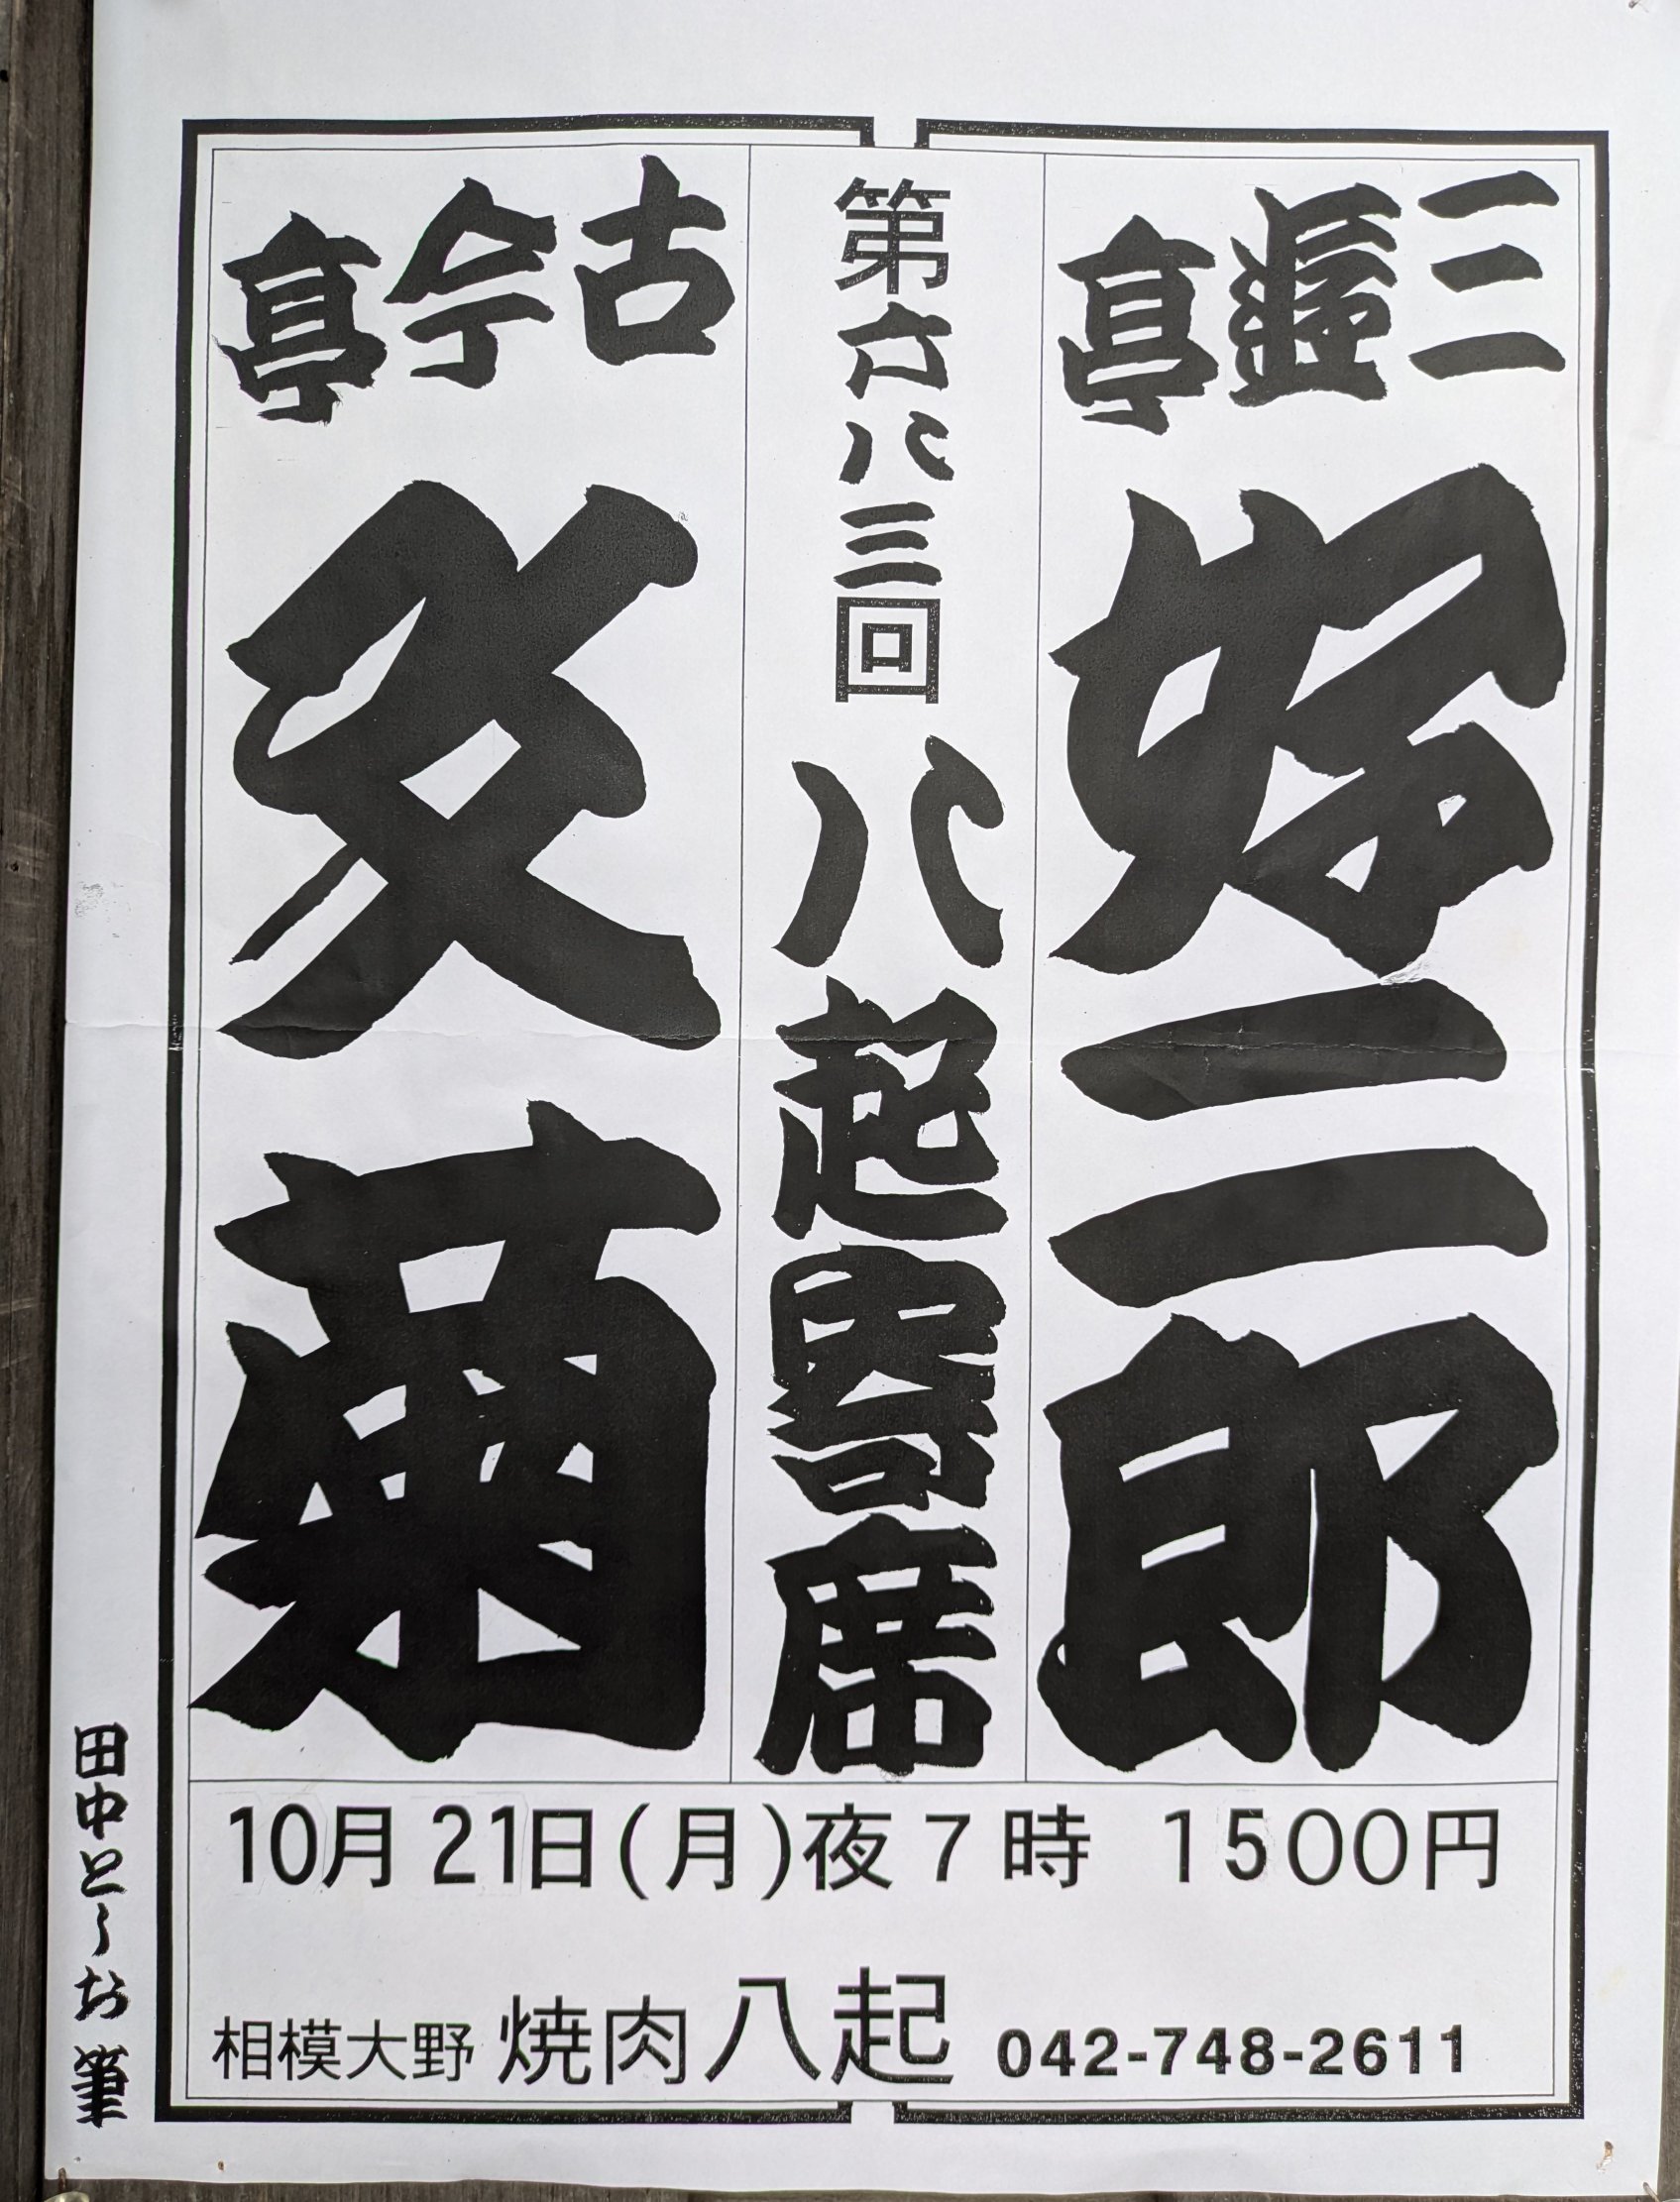 三遊亭
好二郎
第六八三回
八起寄席
古今亭
文菊
10月21日(月)夜7時 1500円
相模大野 焼肉八起 042-748-2611
田中としお筆